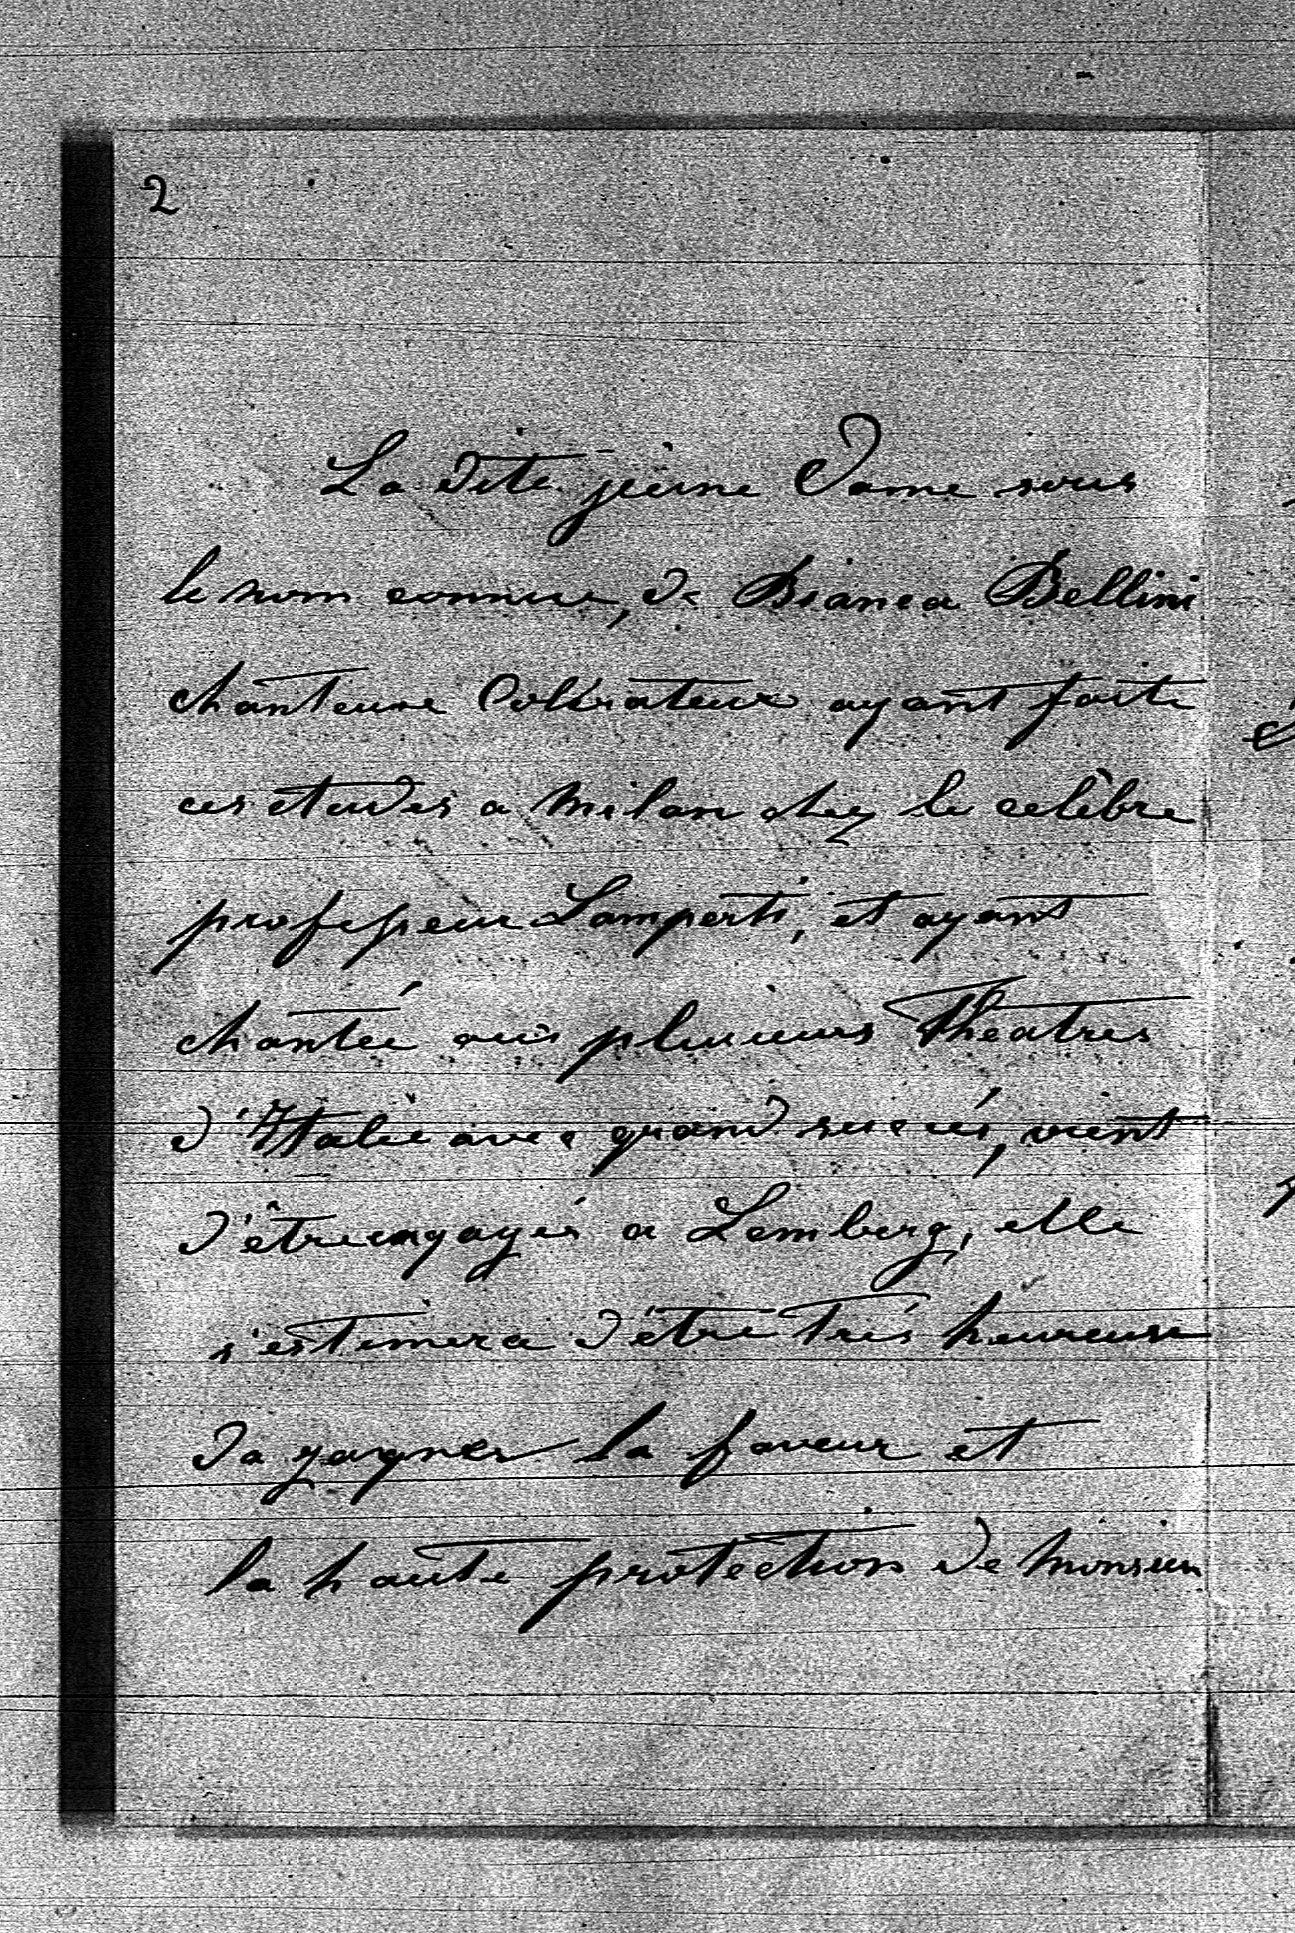 2
La dite jeune Dame sous
le nom connue, de Bianca Bellini
chanteuse Colérateur ayant faite
ces etudes a Milan chez le celèbre
professeur Lamperti, et ayant
chantée plusieurs Théatres
d'Italie avec grand succés, vient
d'être engagés a Lemberg, elle
s'estimera d'être trés heureuse
da gagner la faveur et
la haute protection de Monsieur